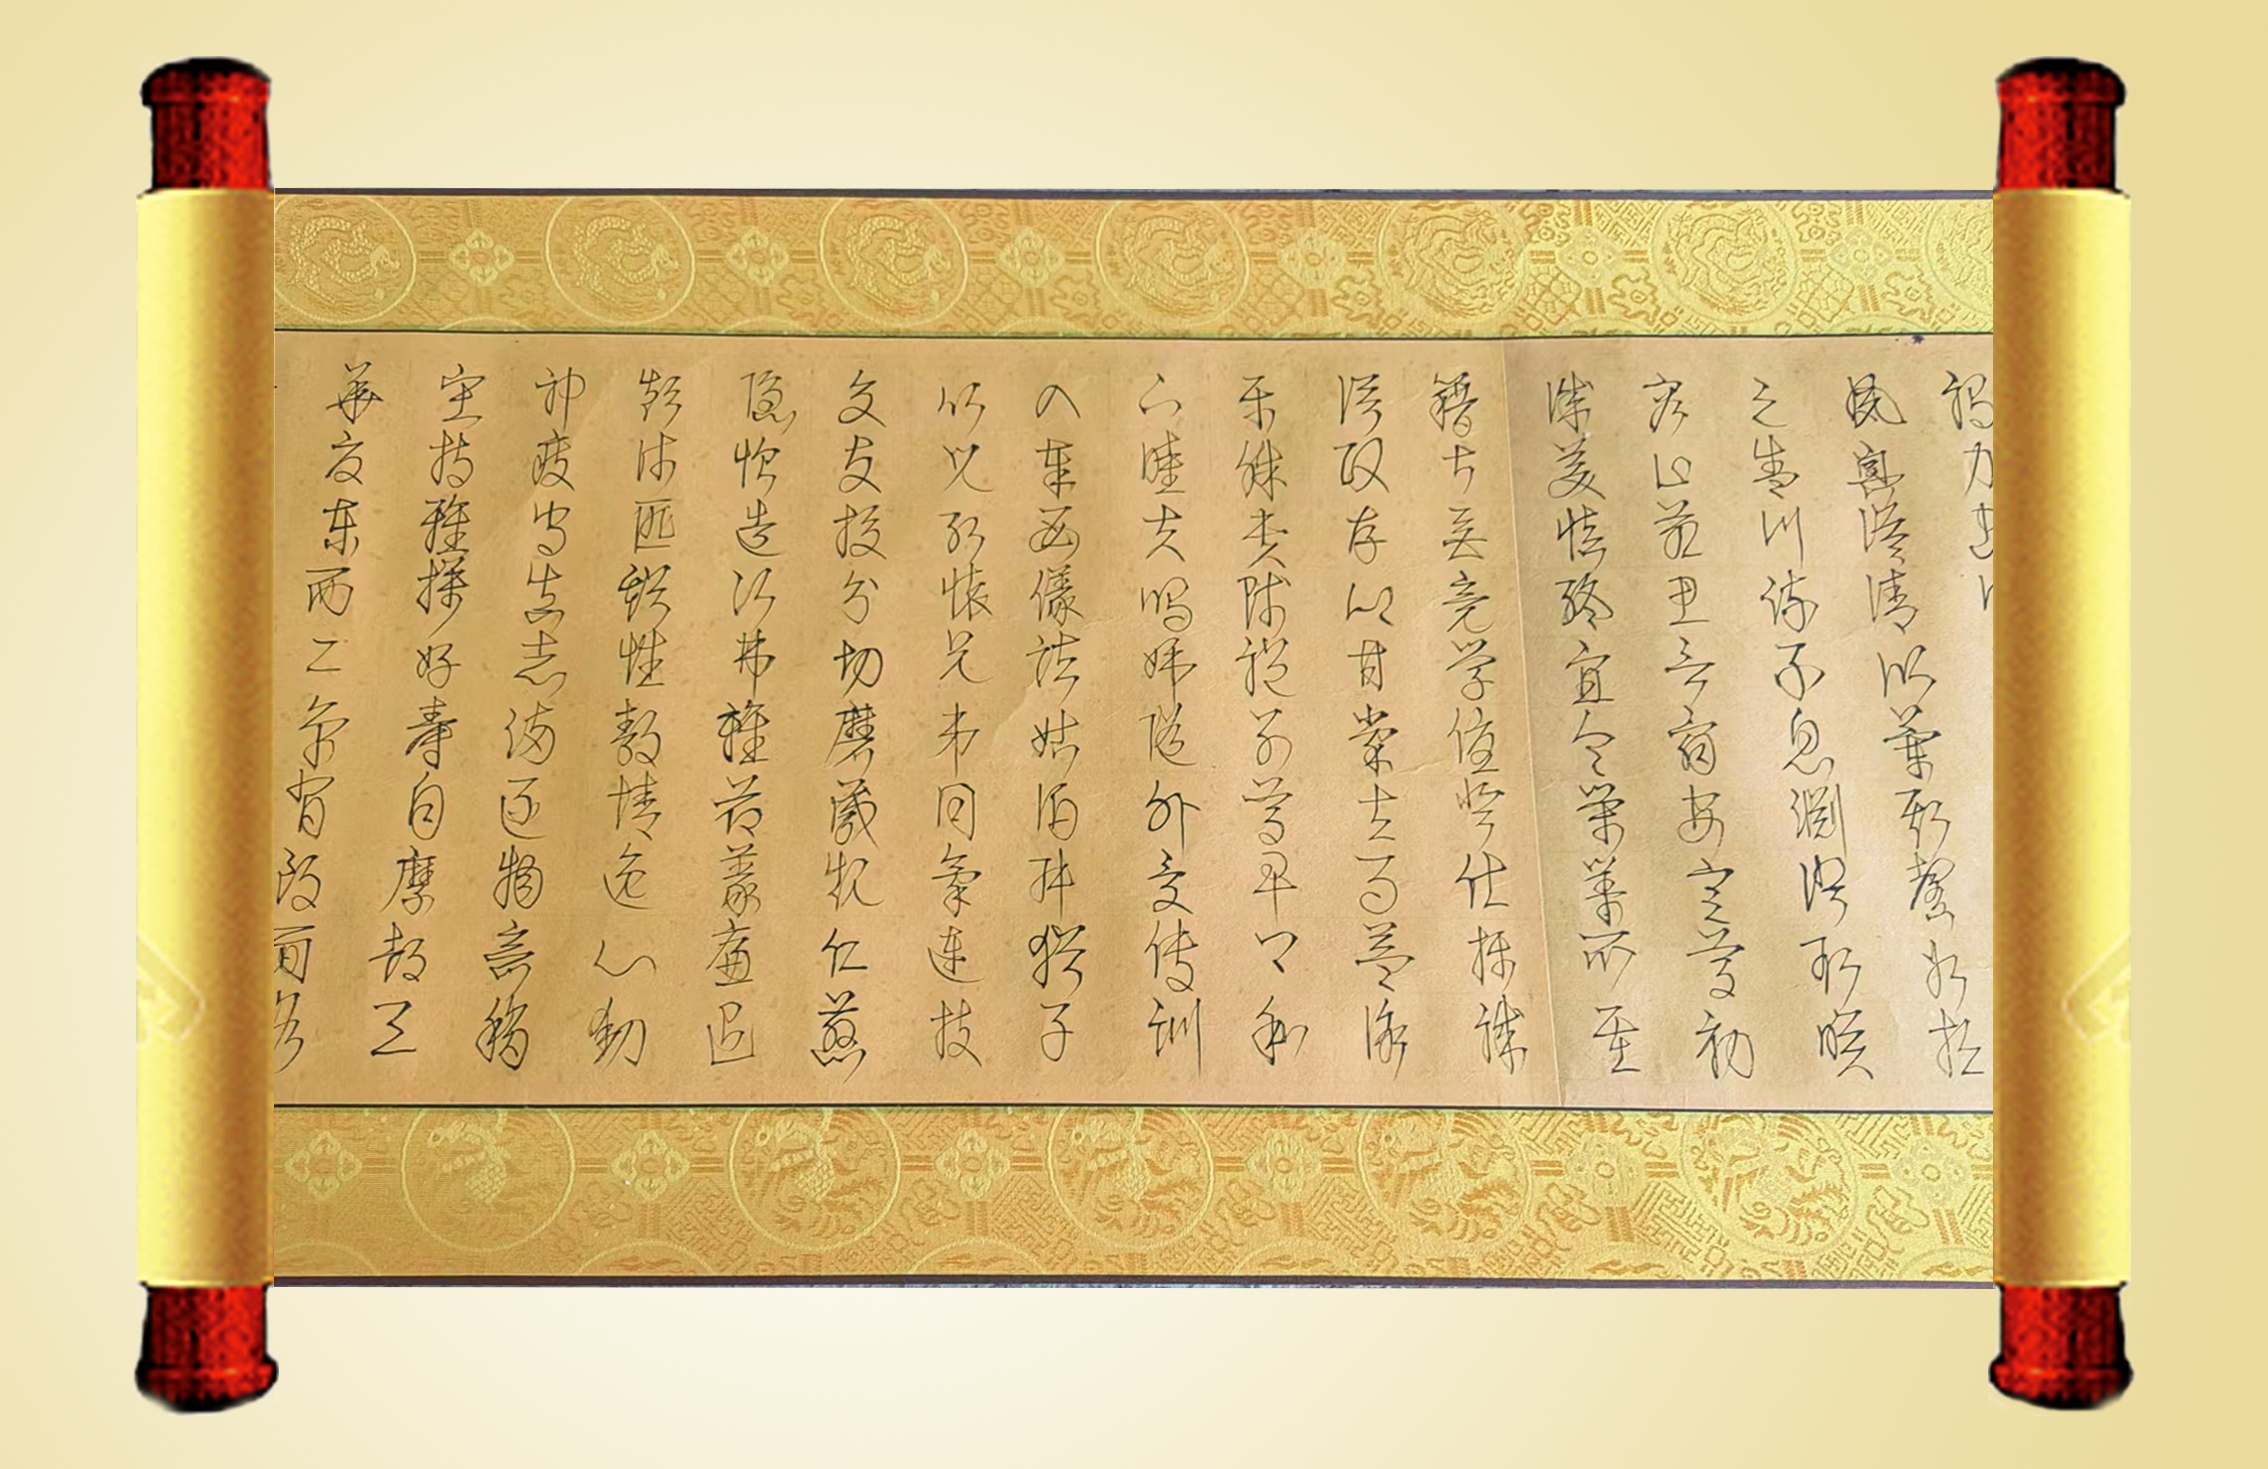 竭力忠則
夙興溫凊似蘭斯馨如松
之盛川流不息淵澄取映
容止若思言辭安定篤初
誠美慎終宜令榮業所基
籍甚無竟學優登仕攝職
從政存以甘棠去而益詠
樂殊貴賤禮別尊卑上和
下睦夫唱婦隨外受傅訓
入奉母儀諸姑伯叔猶子
比兒孔懷兄弟同氣連枝
交友投分切磨箴規仁慈
隱惻造次弗離節義廉退
顛沛匪虧性靜情逸心動
神疲守真志滿逐物意移
堅持雅操好爵自縻都邑
華夏東西二京背邙面洛